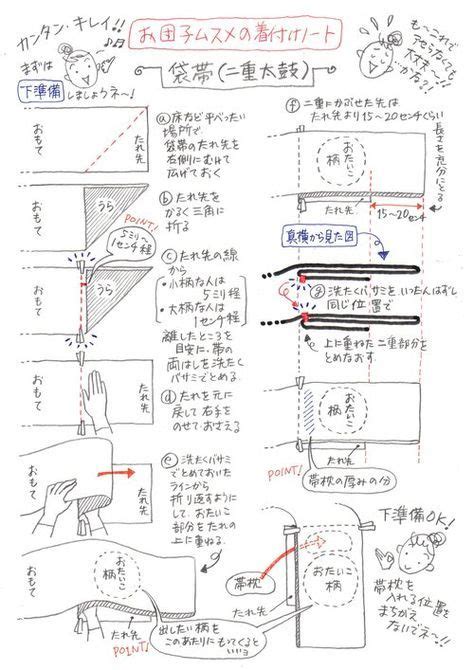 カンタン・キレイ!!
お団子ムスメの着付けノート
も〜これで
アセらなくても
大丈夫〜!!
かな?
まずは
下準備しましょうネ〜!
袋帯(二重太鼓)
おもて
たれ先
ⓐ床など平べったい
場所で
袋帯のたれ先を
右側にむけて
広げておく
おもて
うら
ⓑたれ先を
かるく三角に
折る
POINT!
5ミリ〜
1センチ程
おもて
うら
ⓒたれ先の線
から
・小柄な人は
5ミリ程
・大柄な人は
1センチ程
離したところを
目安に、帯の
両はしを洗たく
バサミでとめる.
おもて
たれ先
ⓓたれを元に
戻して右手を
のせておさえる
おもて
たれ先
ⓔ洗たくバサミ
でとめておいた
ラインから
折り返すように
して、おたいこ
部分をたれの
上に重ねる.
おもて
おたいこ
柄
たれ先
POINT!
出したい柄を
このあたりにもってくると
いいョ
ⓕ二重にかぶせた先は
たれ先より15〜20センチくらい
長さを充分にとる
おたいこ
柄
たれ先
15〜20センチ
真横から見た図
ⓖ洗たくバサミをいったんはずし
同じ位置で
上に重ねた二重部分を
とめなおす.
おたいこ
柄
たれ先
POINT!
帯枕の厚みの分
帯枕
おたいこ
柄
たれ先
下準備OK!
帯枕を
入れる位置を
まちがえ
ないでネ〜!!